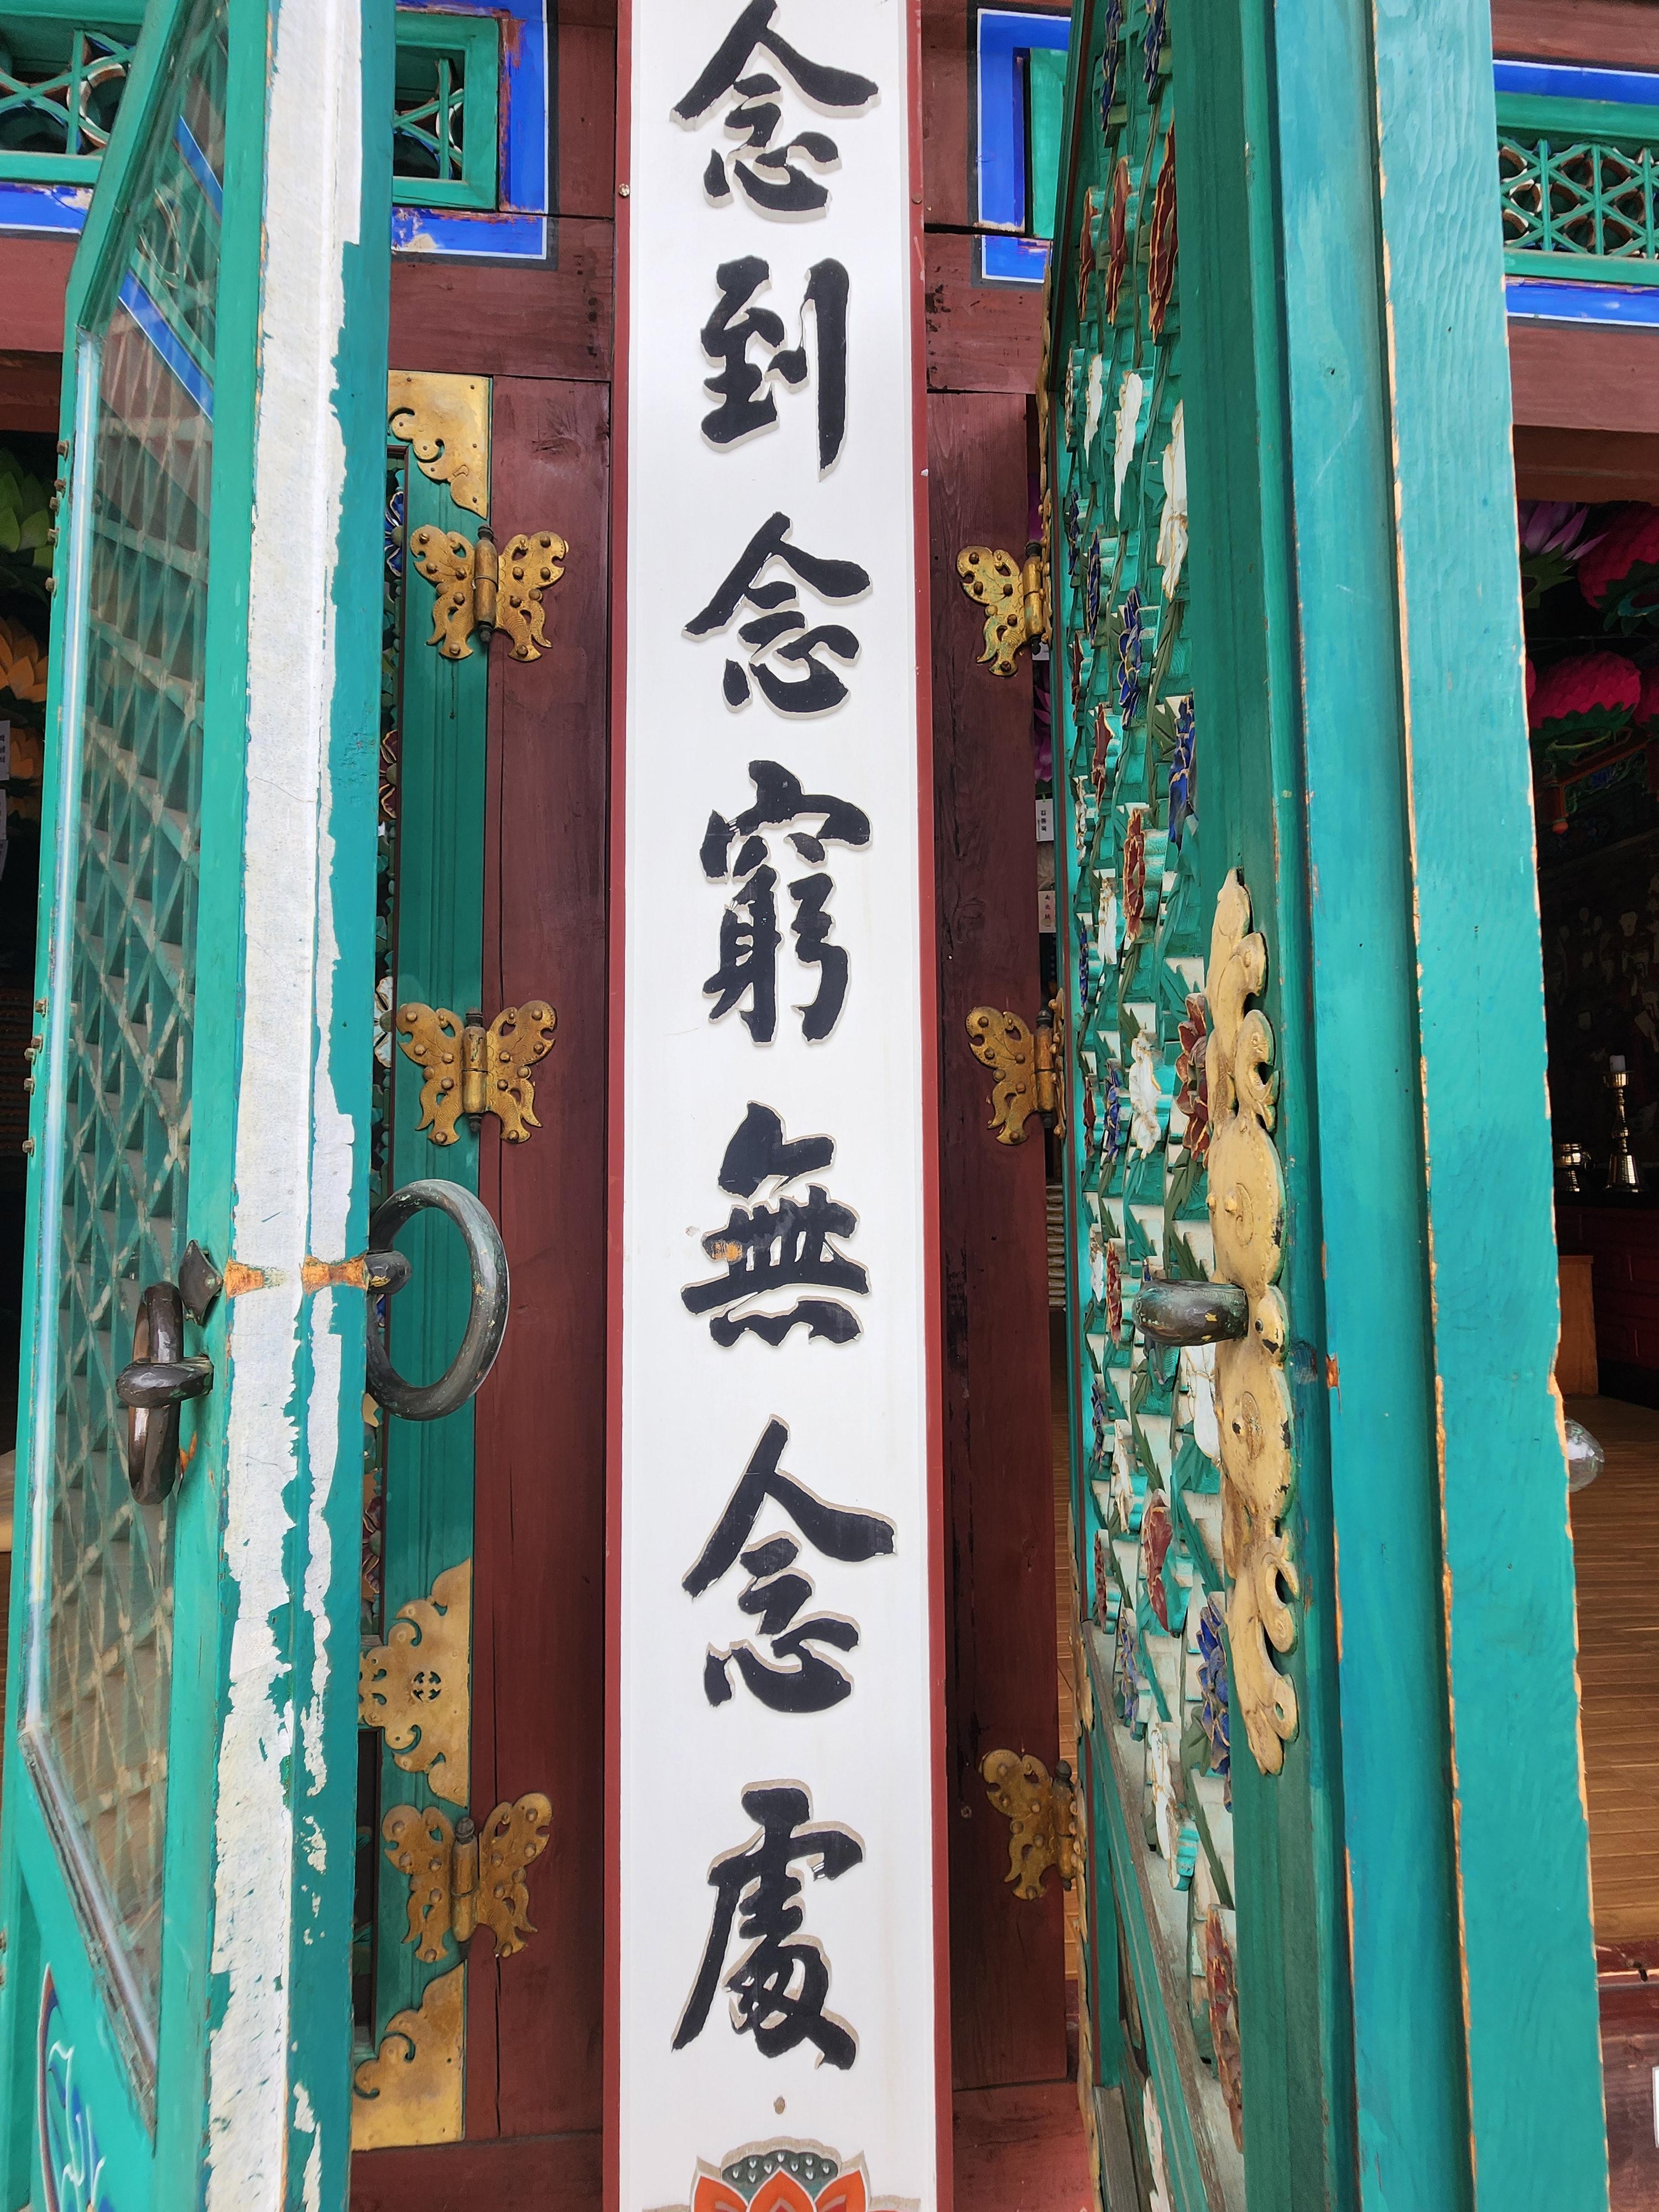 念到念窮無念處